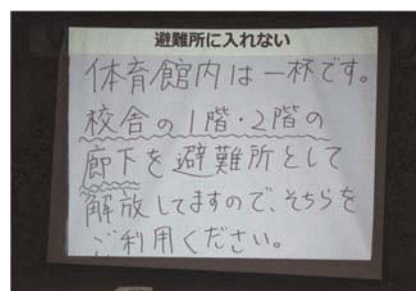 避難所に入れない
体育館内は一杯です。
校舎の1階・2階の
廊下を避難所として
解放してますので、そちらを
ご利用ください。